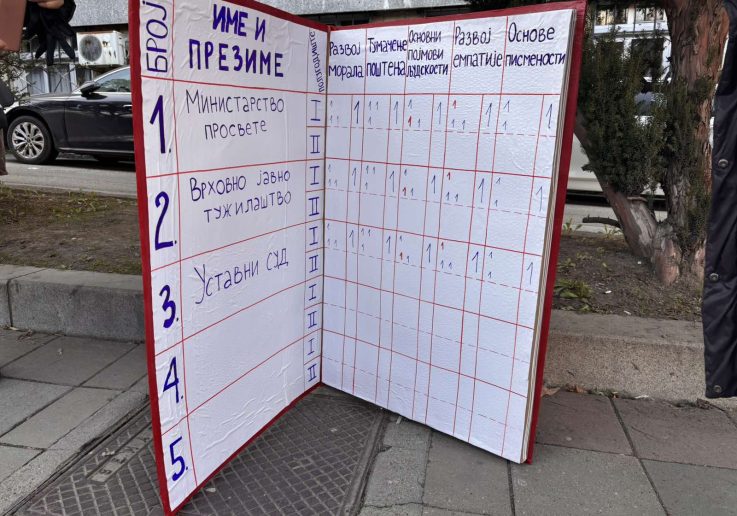 БРОЈ
ИМЕ И
ПРЕЗИМЕ
ПОЛУГОДИШТЕ
Развој
морала
Тумачење
поштења
Основни
појмови
људскости
Развој
емпатије
Основе
писмености
1.
Министарство
просвете
I
II
1 1 1 1 1
2.
Врховно јавно
тужилаштво
I
II
1 1 1 1 1
3.
Уставни суд
I
II
1 1 1 1 1
4.
I
II
5.
I
II